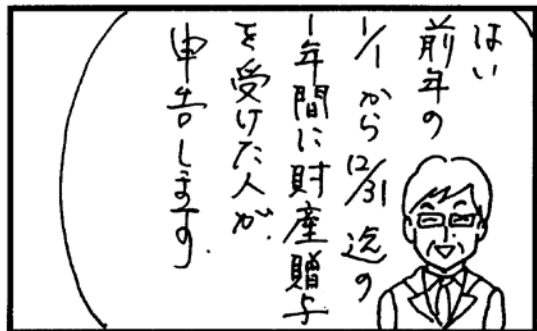 はい
前年の
1/1から12/31迄の
1年間に財産贈与
を受けた人が
申告します。